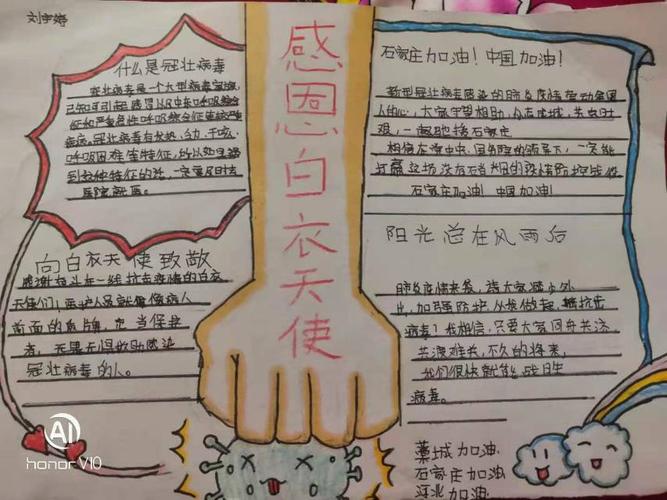 刘宇婷
感恩白衣天使
什么是冠壮病毒
冠壮病毒是一个大型病毒家族,
已知可引起感冒以及中东呼吸综合
征和严重急性呼吸综合征等较严重
疾病。冠壮病毒有发热、乏力、干咳、
呼吸困难等特征,所以如果遇
到这种特征的话,一定要及时去
医院就医。
向白衣天使致敬
感谢奋斗在一线抗击疫情的白衣
天使们,医护人员就像像病人
前面的盾牌,充当保护
者,无畏无惧救助感染
冠壮病毒的人。
石家庄加油!中国加油!
新型冠壮病毒感染的肺炎疫情牵动全国
人的心,大家守望相助、众志成城、共克时
艰,一起驰援石家庄
相信在党中央、国务院的领导下,一定能
打赢这场没有硝烟的疫情防控战役
石家庄加油!中国加油!
阳光总在风雨后
肺炎疫情来袭,请大家减少外
出,加强防护,从我做起,抵抗击
病毒!我相信,只要大家同舟共济,
共渡难关,不久的将来,
我们很快就能战胜
病毒。
藁城加油
石家庄加油
河北加油
AI
honor V10